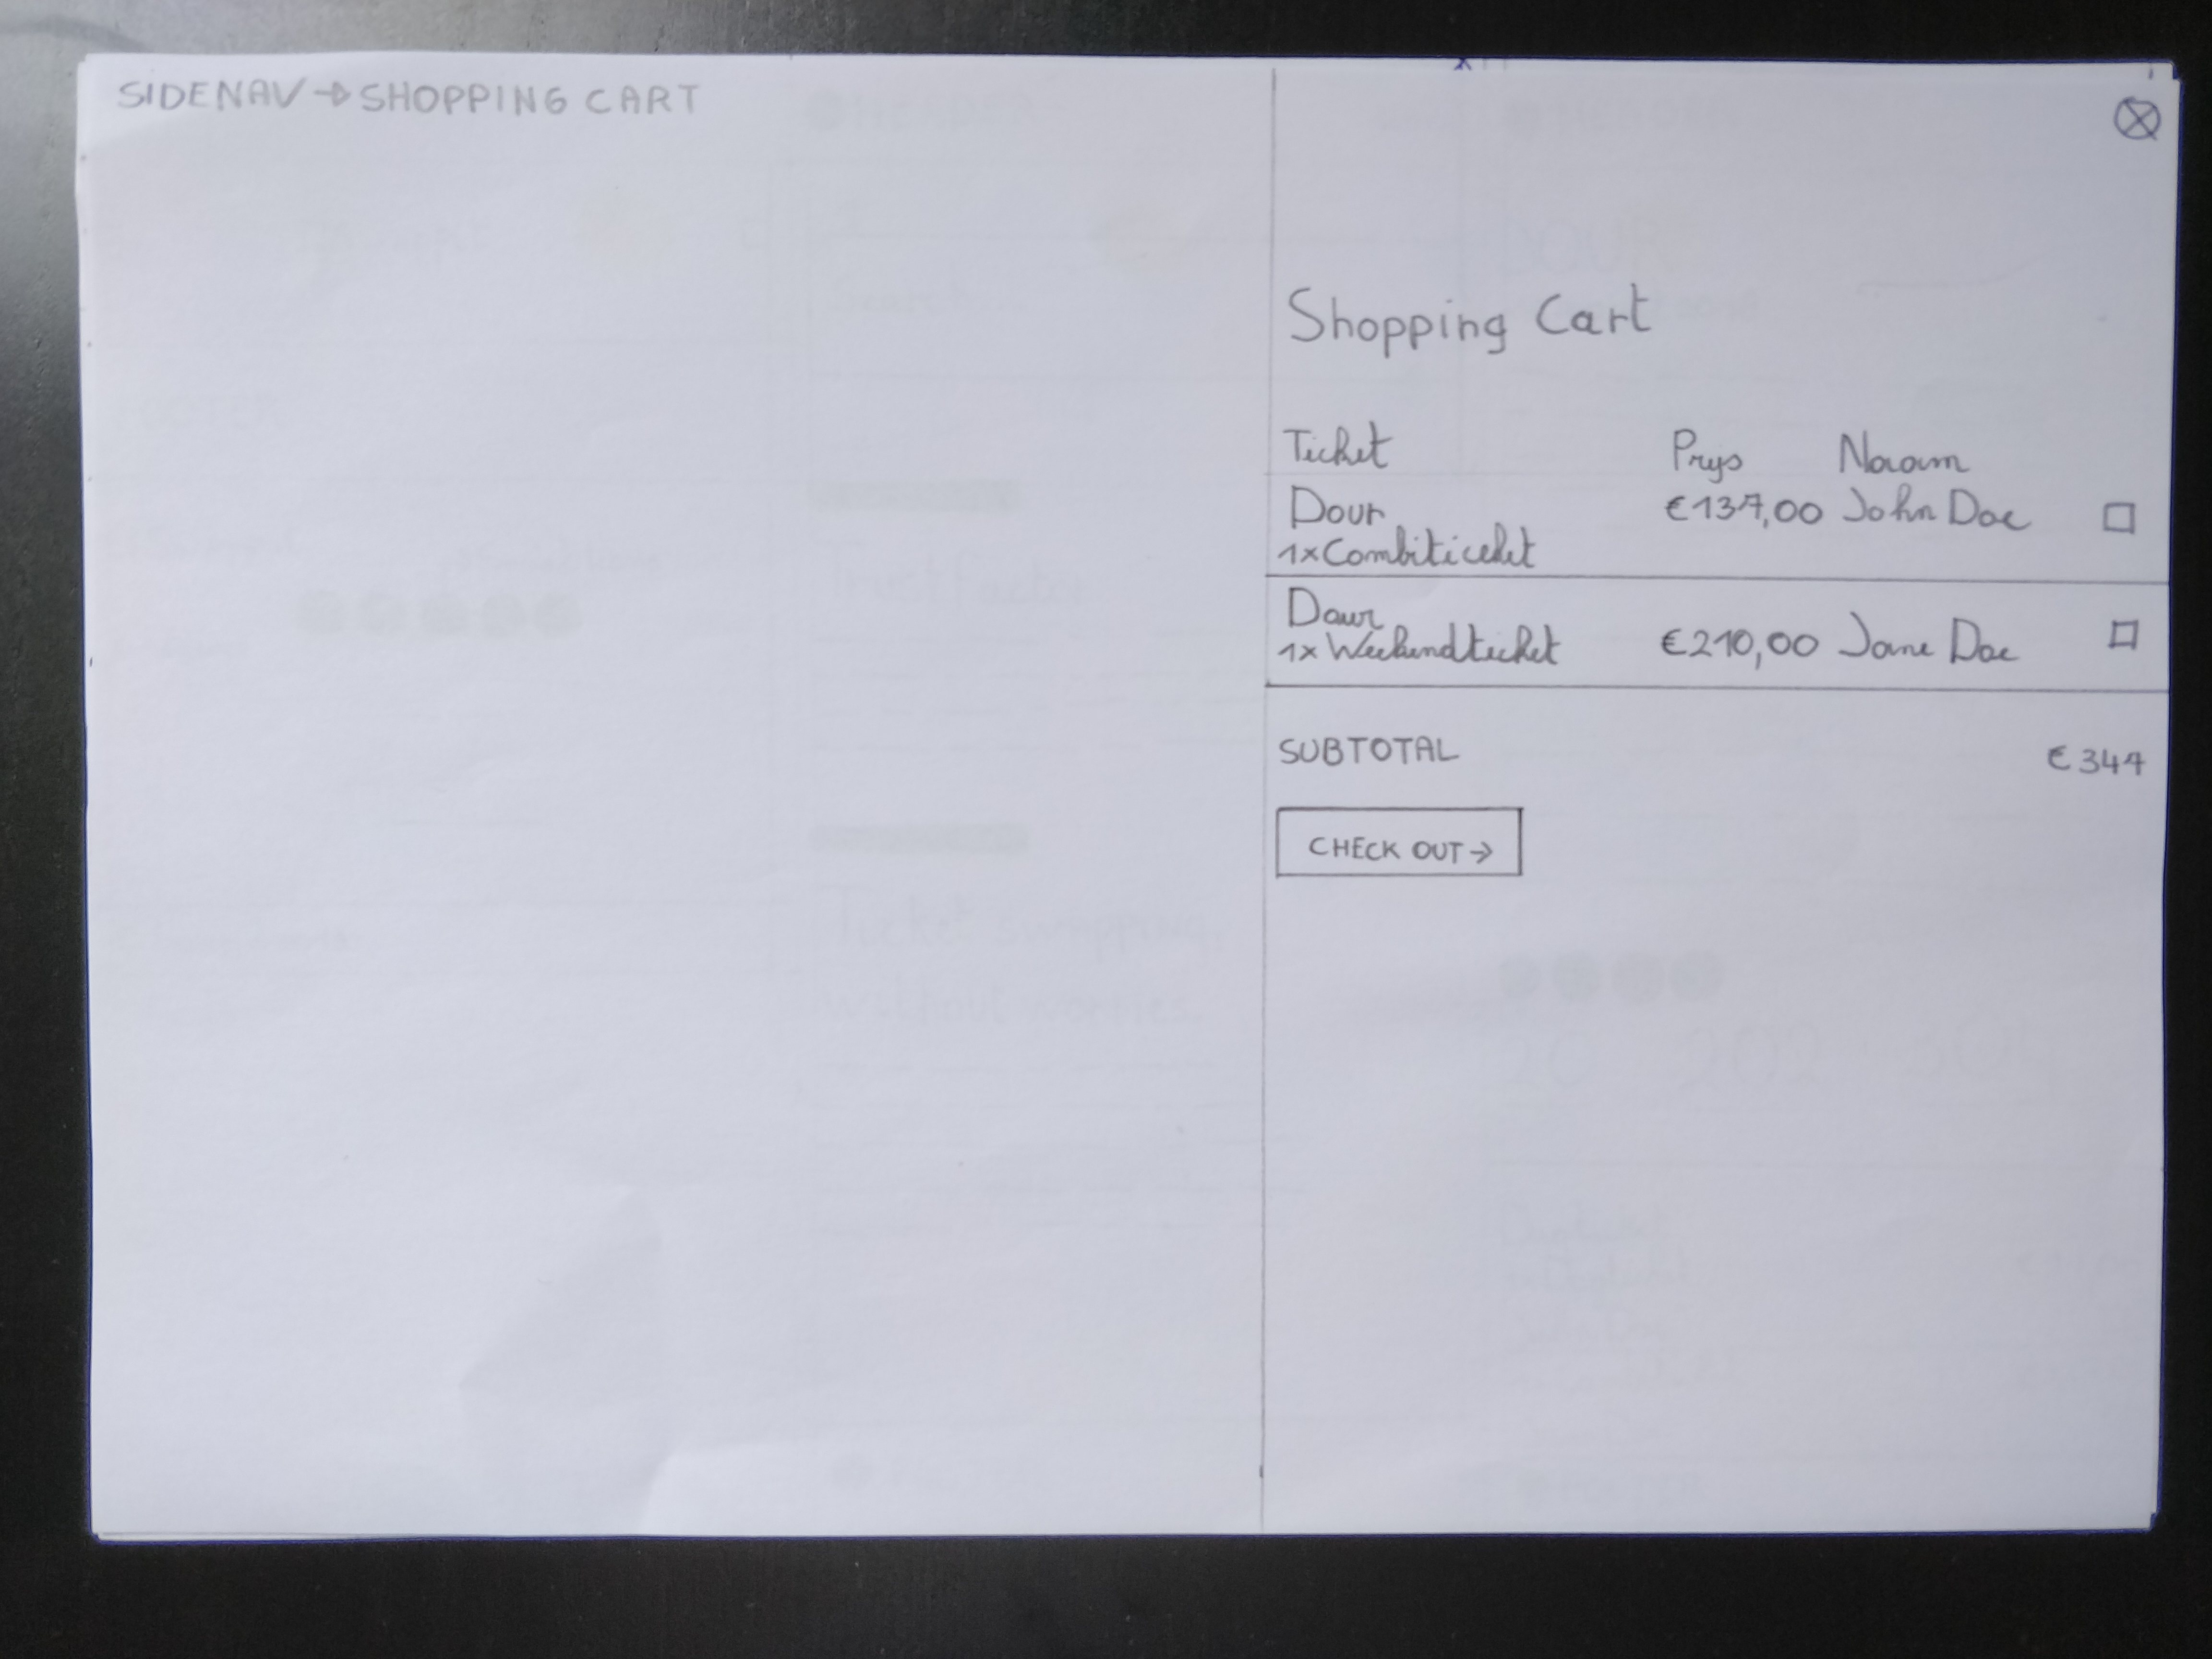 SIDENAV → SHOPPING CART
Shopping Cart
Ticket Prijs Naam
Dour €137,00 John Doe
1x Combiticket
Dour
1x Weekendticket €210,00 Jane Doe
SUBTOTAL €347
CHECK OUT →